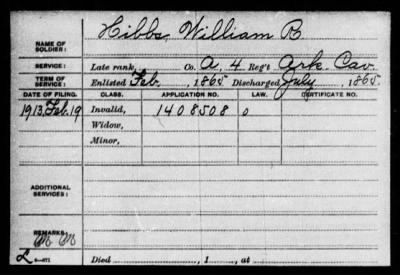 Hibbs, William B
NAME OF SOLDIER:
SERVICE: Late rank, Co. A, 4 Reg't Ark. Cav.
TERM OF SERVICE: Enlisted Feb. , 1865 Discharged July , 1865
DATE OF FILING. CLASS. APPLICATION NO. LAW. CERTIFICATE NO.
1913, Feb. 19 Invalid, 1408508 0
Widow,
Minor,
ADDITIONAL SERVICES:
REMARKS:
L 6—071
Died , 1 , at